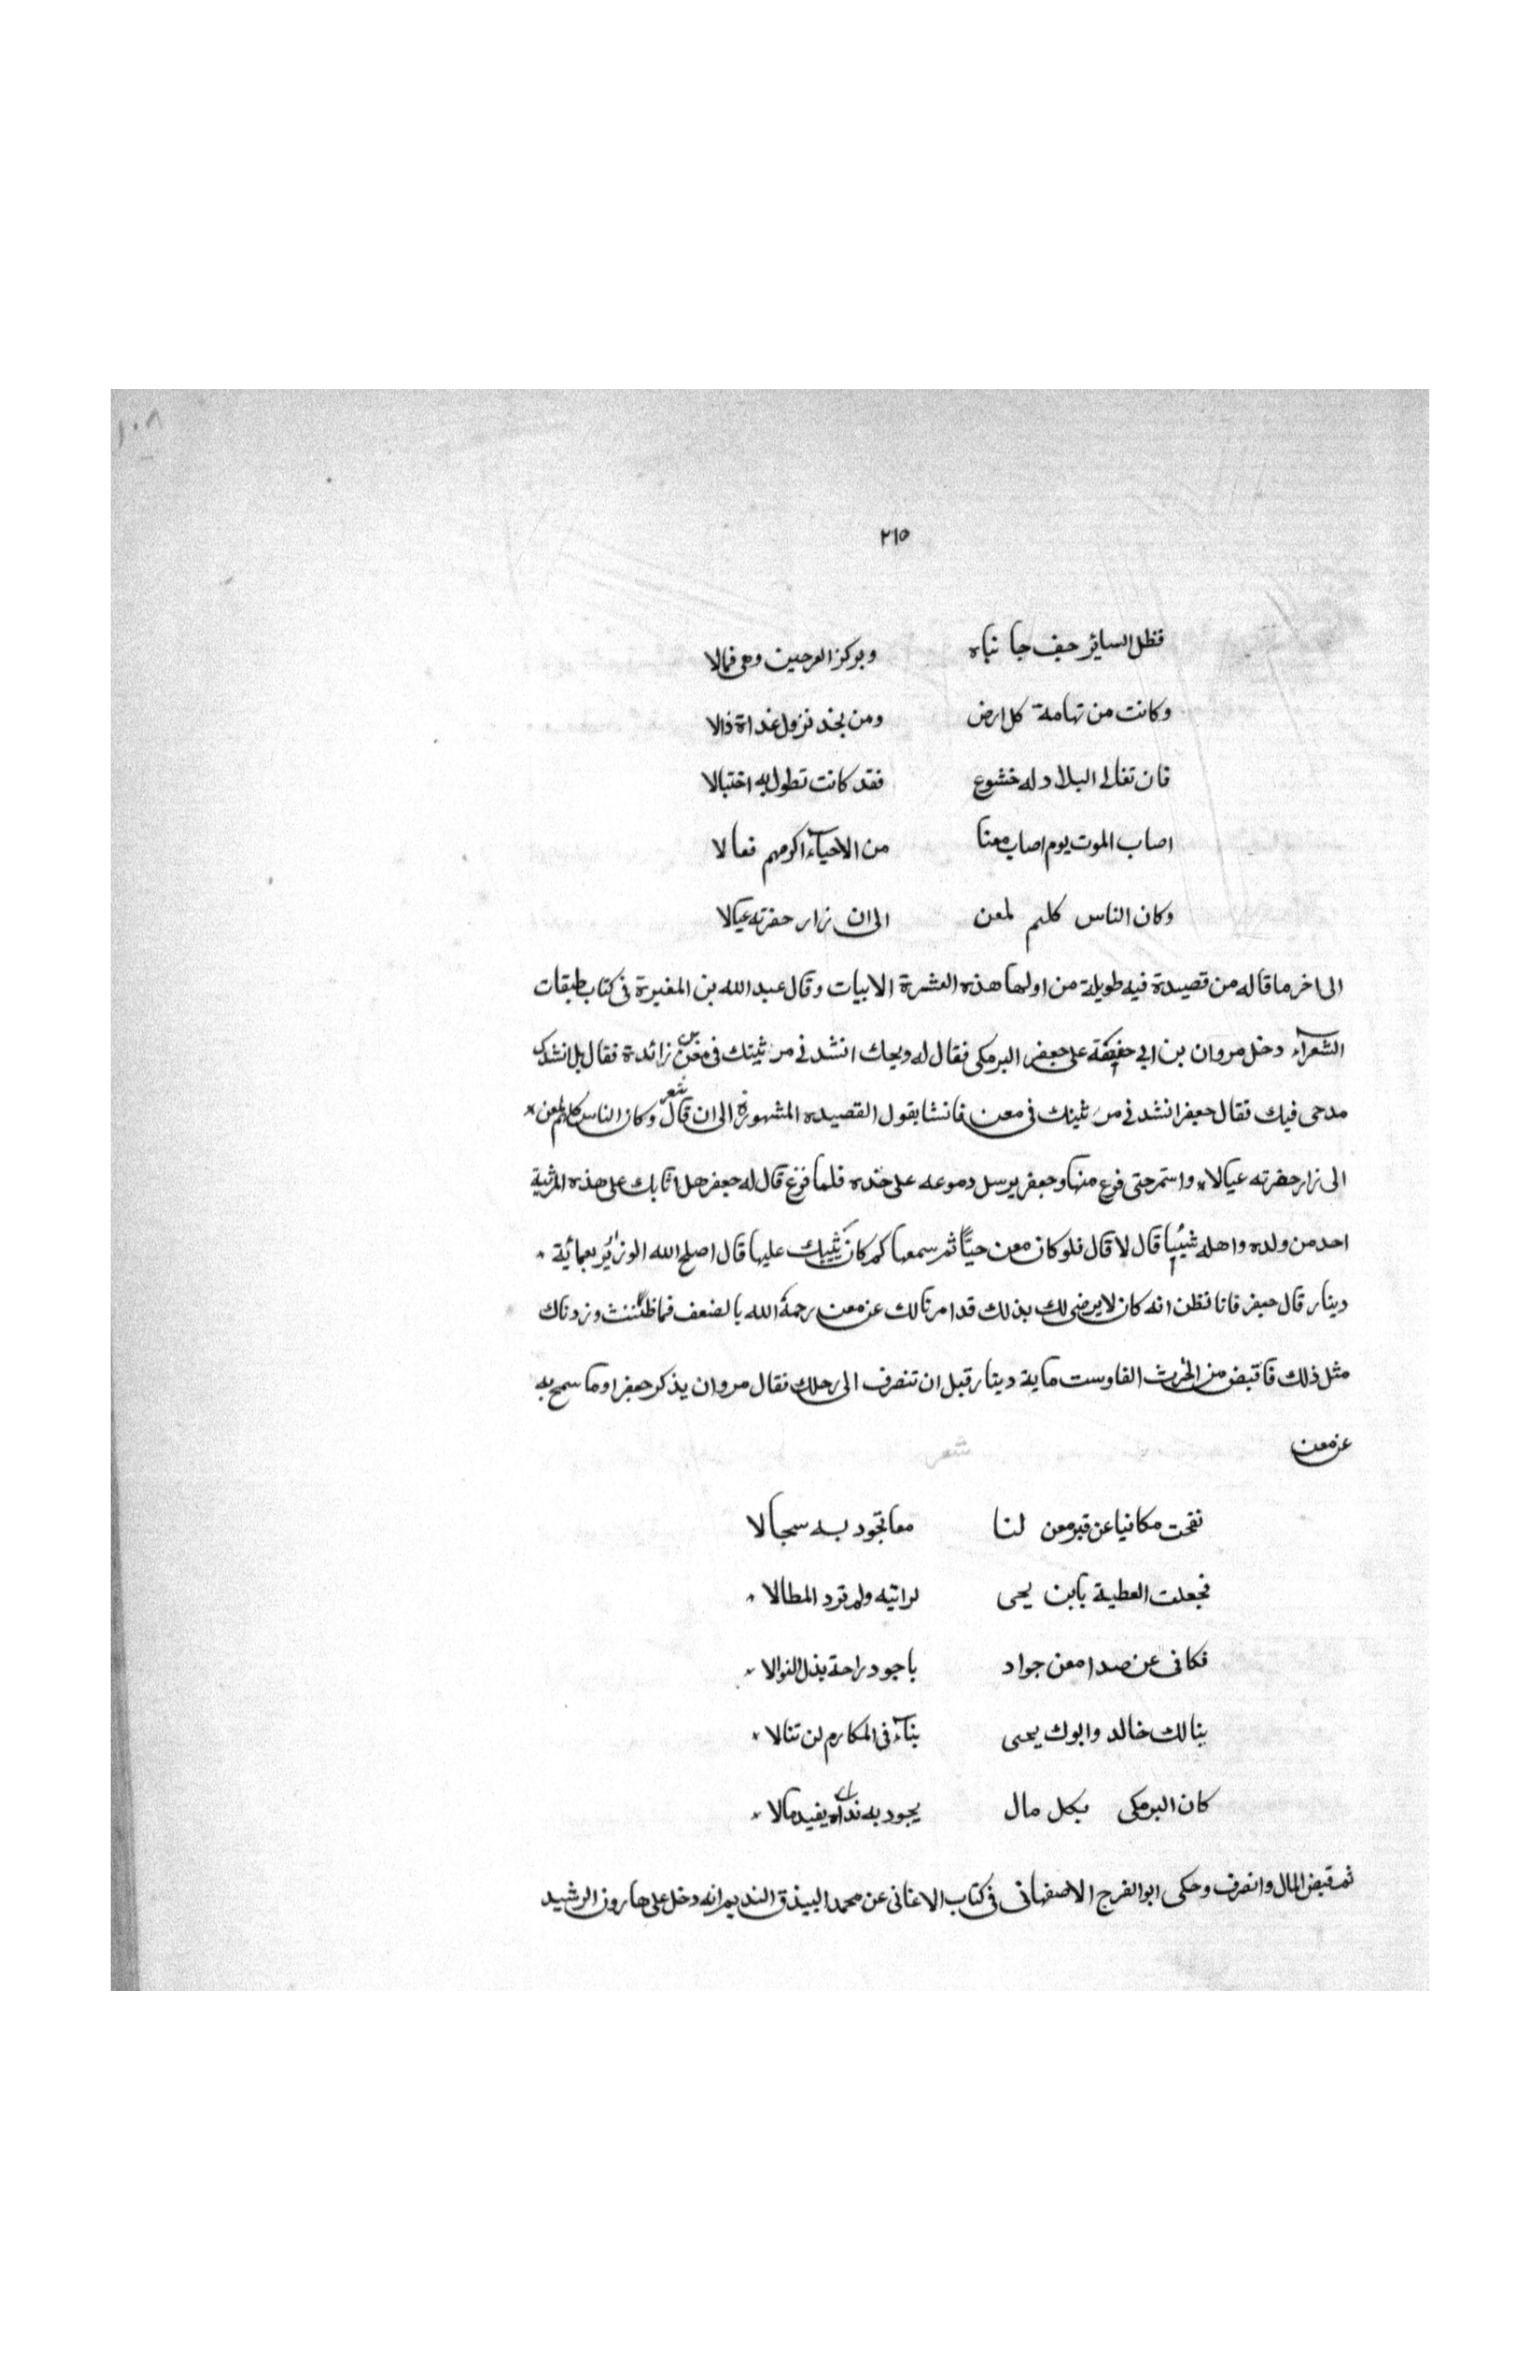 ١٠٨
٢١٥
فظل السائر حيف جا نباه وبركز العرجين وهى فمالا
وكانت من تهامة كل ارض ومن نجد نزول غداة ذالا
فان تغالى البلاد له خشوع فقد كانت تطول به اختيالا
اصاب الموت يوم اصاب معنا من الاحياء اكرمهم فعالا
وكان الناس كلهم لمعن الى ان زار حفرته عيالا
الى اخر ما قاله من قصيدة فيه طويلة من اولها هذه العشرة الابيات وقال عبد الله بن المغيرة فى كتاب طبقات
الشعراء دخل مروان بن ابى حفيفة على جعفر البرمكى فقال له ويحك انشدنى مرثيتك فى معن بن زائدة فقال بل انشدك
مدحى فيك فقال جعفر انشدنى مرثيتك فى معن فانشا يقول القصيده المشهورة الى ان قال شعر وكان الناس كلهم لمعن *
الى زار حفرته عيالا * واستمر حتى فرغ منها وجعفر يرسل دموعه على خده فلما فرغ قال له جعفر هل اثابك على هذه المرثية
احد من ولده واهله شيئا قال لا قال فلو كان معن حيّا ثم سمعها كم كان يثيبك عليها قال اصلح الله الوزير بعمائة *
دينار قال جعفر فانا نظن انه كان لا يرضى لك بذلك قد امرنا لك عن معن رحمة الله بالضعف فما ظننت وزدناك
مثل ذلك فاقبض من الخرث الفا وست ماية دينار قبل ان تنصرف الى رحلك فقال مروان يذكر جعفرا وما سمح به
عن معن شعر
نفحت مكافيا عن قبر معن لنا معا تجود به سجالا
فجعلت العطية يابن يحى لراثيه ولم ترد المطالا *
فكافى عن صدا معن جواد باجود راحة بذل النوالا *
بنا لك خالد وابوك يحيى بناء فى المكارم لن تنالا *
كان البرمكى بكل مال يجود به نداه يفيد مالا *
ثم قبض المال وانصرف وحكى ابو الفرج الاصفهانى فى كتاب الاغانى عن محمد البيذق النديم انه دخل على هارون الرشيد